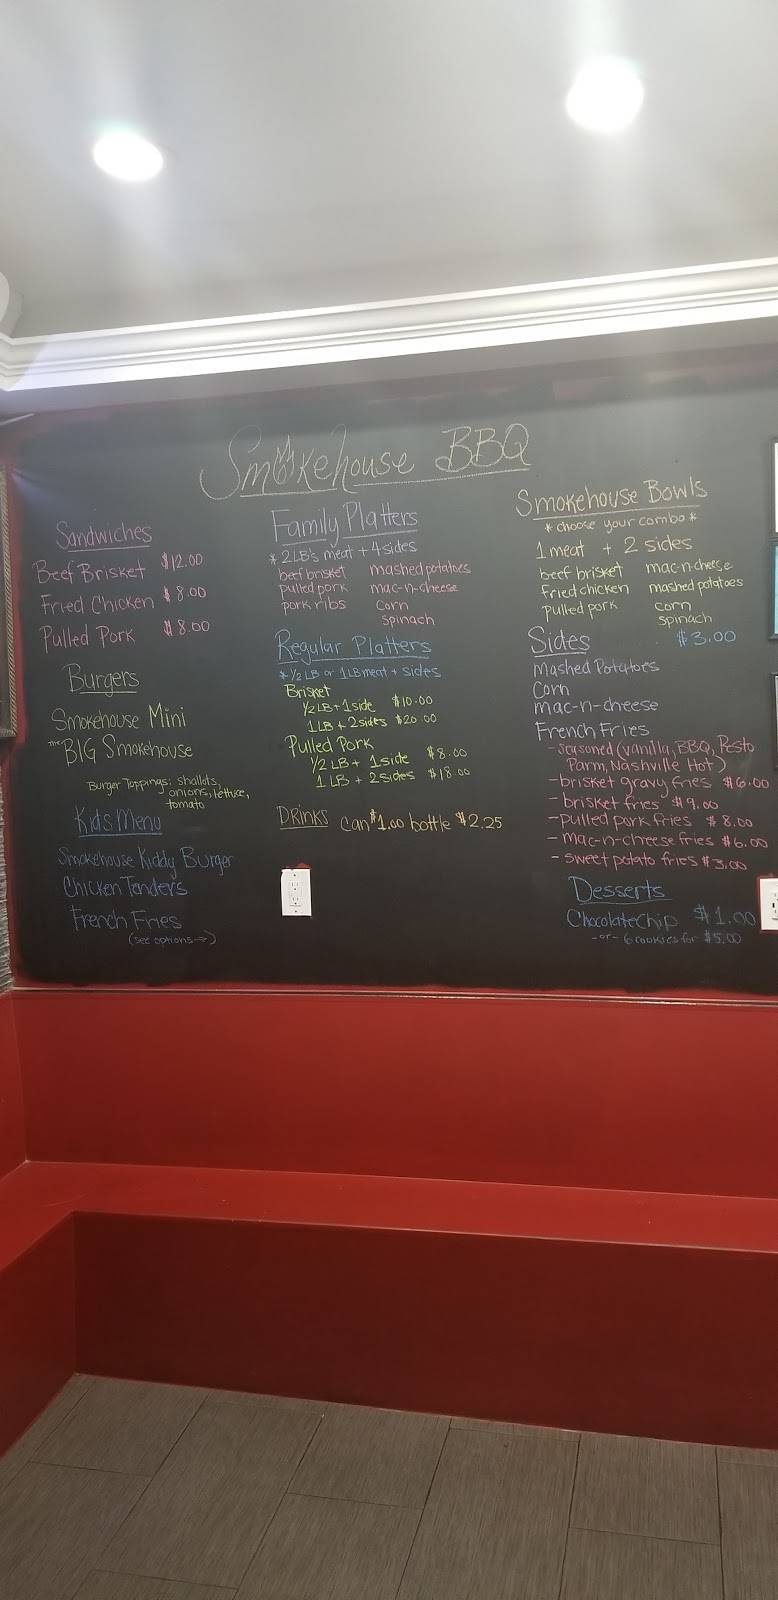 Smokehouse BBQ
Sandwiches
Beef Brisket $12.00
Fried Chicken $8.00
Pulled Pork $8.00
Burgers
Smokehouse Mini
The BIG Smokehouse
Burger Toppings: shallots,
onions, lettuce,
tomato
Kids Menu
Smokehouse Kiddy Burger
Chicken Tenders
French Fries
(see options →)
Family Platters
* 2 LB's meat + 4 sides
beef brisket mashed potatoes
pulled pork mac-n-cheese
pork ribs corn
spinach
Regular Platters
* 1/2 LB or 1 LB meat + sides
Brisket
1/2 LB + 1 side $10.00
1 LB + 2 sides $20.00
Pulled Pork
1/2 LB + 1 side $8.00
1 LB + 2 sides $18.00
DRINKS can $1.00 bottle $2.25
Smokehouse Bowls
* choose your combo *
1 meat + 2 sides
beef brisket mac-n-cheese
fried chicken mashed potatoes
pulled pork corn
spinach
Sides $3.00
Mashed Potatoes
Corn
mac-n-cheese
French Fries
- seasoned (vanilla, BBQ, Pesto
Parm, Nashville Hot)
- brisket gravy fries $6.00
- brisket fries $9.00
- pulled pork fries $8.00
- mac-n-cheese fries $6.00
- sweet potato fries $3.00
Desserts
Chocolate Chip $1.00
-or- 6 cookies for $5.00